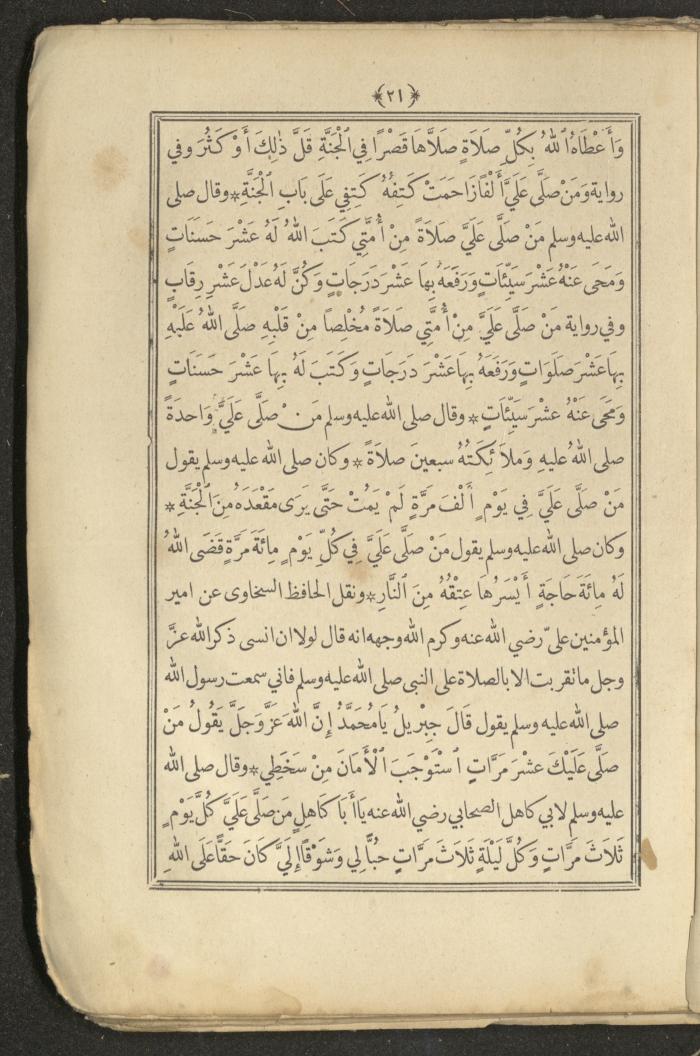 ﴿٢١﴾
وَأَعْطَاهُ ٱللهُ بِكُلِّ صَلَاةٍ صَلَّاهَا قَصْرًا فِي ٱلْجَنَّةِ قَلَّ ذٰلِكَ أَوْ كَثُرَ وفي
رواية وَمَنْ صَلَّى عَلَيَّ أَلْفًا زَاحَمَتْ كَتِفُهُ كَتِفِي عَلَى بَابِ ٱلْجَنَّةِ * وقال صلى
الله عليه وسلم مَنْ صَلَّى عَلَيَّ صَلَاةً مِنْ أُمَّتِي كَتَبَ اللهُ لَهُ عَشْرَ حَسَنَاتٍ
وَمَحَى عَنْهُ عَشْرَ سَيِّئَاتٍ وَرَفَعَهُ بِهَا عَشْرَ دَرَجَاتٍ وَكُنَّ لَهُ عَدْلَ عَشْرِ رِقَابٍ
وفي رواية مَنْ صَلَّى عَلَيَّ مِنْ أُمَّتِي صَلَاةً مُخْلِصًا مِنْ قَلْبِهِ صَلَّى اللهُ عَلَيْهِ
بِهَا عَشْرَ صَلَوَاتٍ وَرَفَعَهُ بِهَا عَشْرَ دَرَجَاتٍ وَكَتَبَ لَهُ بِهَا عَشْرَ حَسَنَاتٍ
وَمَحَى عَنْهُ عَشْرَ سَيِّئَاتٍ * وقال صلى الله عليه وسلم مَنْ صَلَّى عَلَيَّ وَاحدَةً
صلى اللهُ عليهِ وَملَائِكَتُهُ سبعينَ صلاَةً * وكان صلى الله عليه وسلم يقول
مَنْ صَلَّى عَلَيَّ فِي يَوْمٍ أَلْفَ مَرَّةٍ لَمْ يَمُتْ حَتَّى يَرَى مَقْعَدَهُ مِنَ ٱلْجَنَّةِ *
وكان صلى الله عليه وسلم يقول مَنْ صَلَّى عَلَيَّ فِي كُلِّ يَوْمٍ مِائَةَ مَرَّةٍ قَضَى اللهُ
لَهُ مِائَةَ حَاجَةٍ أَيْسَرُهَا عِتْقُهُ مِنَ ٱلنَّارِ * ونقل الحافظ السخاوى عن امير
المؤمنين علىّ رضي الله عنه وكرم الله وجهه انه قال لولا ان انسى ذكر الله عزَّ
وجل ما تقربت الا بالصلاة على النبى صلى الله عليه وسلم فاني سمعت رسول الله
صلى الله عليه وسلم يقول قَالَ جِبْرِيلُ يَا مُحَمَّدُ إِنَّ اللهَ عَزَّ وَجَلَّ يَقُولُ مَنْ
صَلَّى عَلَيْكَ عَشْرَ مَرَّاتٍ ٱسْتَوْجَبَ ٱلْأَمَانَ مِنْ سَخَطِي * وقال صلى الله
عليه وسلم لابي كاهل الصحابي رضي الله عنه يَا أَبَا كَاهِلٍ مَن صَلَّى عَلَيَّ كُلَّ يَوْمٍ
ثَلاَثَ مَرَّاتٍ وَكُلَّ لَيْلَةٍ ثَلاَثَ مَرَّاتٍ حُبًّا لِي وَشَوْقًا إِلَيَّ كَانَ حَقًّا عَلَى اللهِ